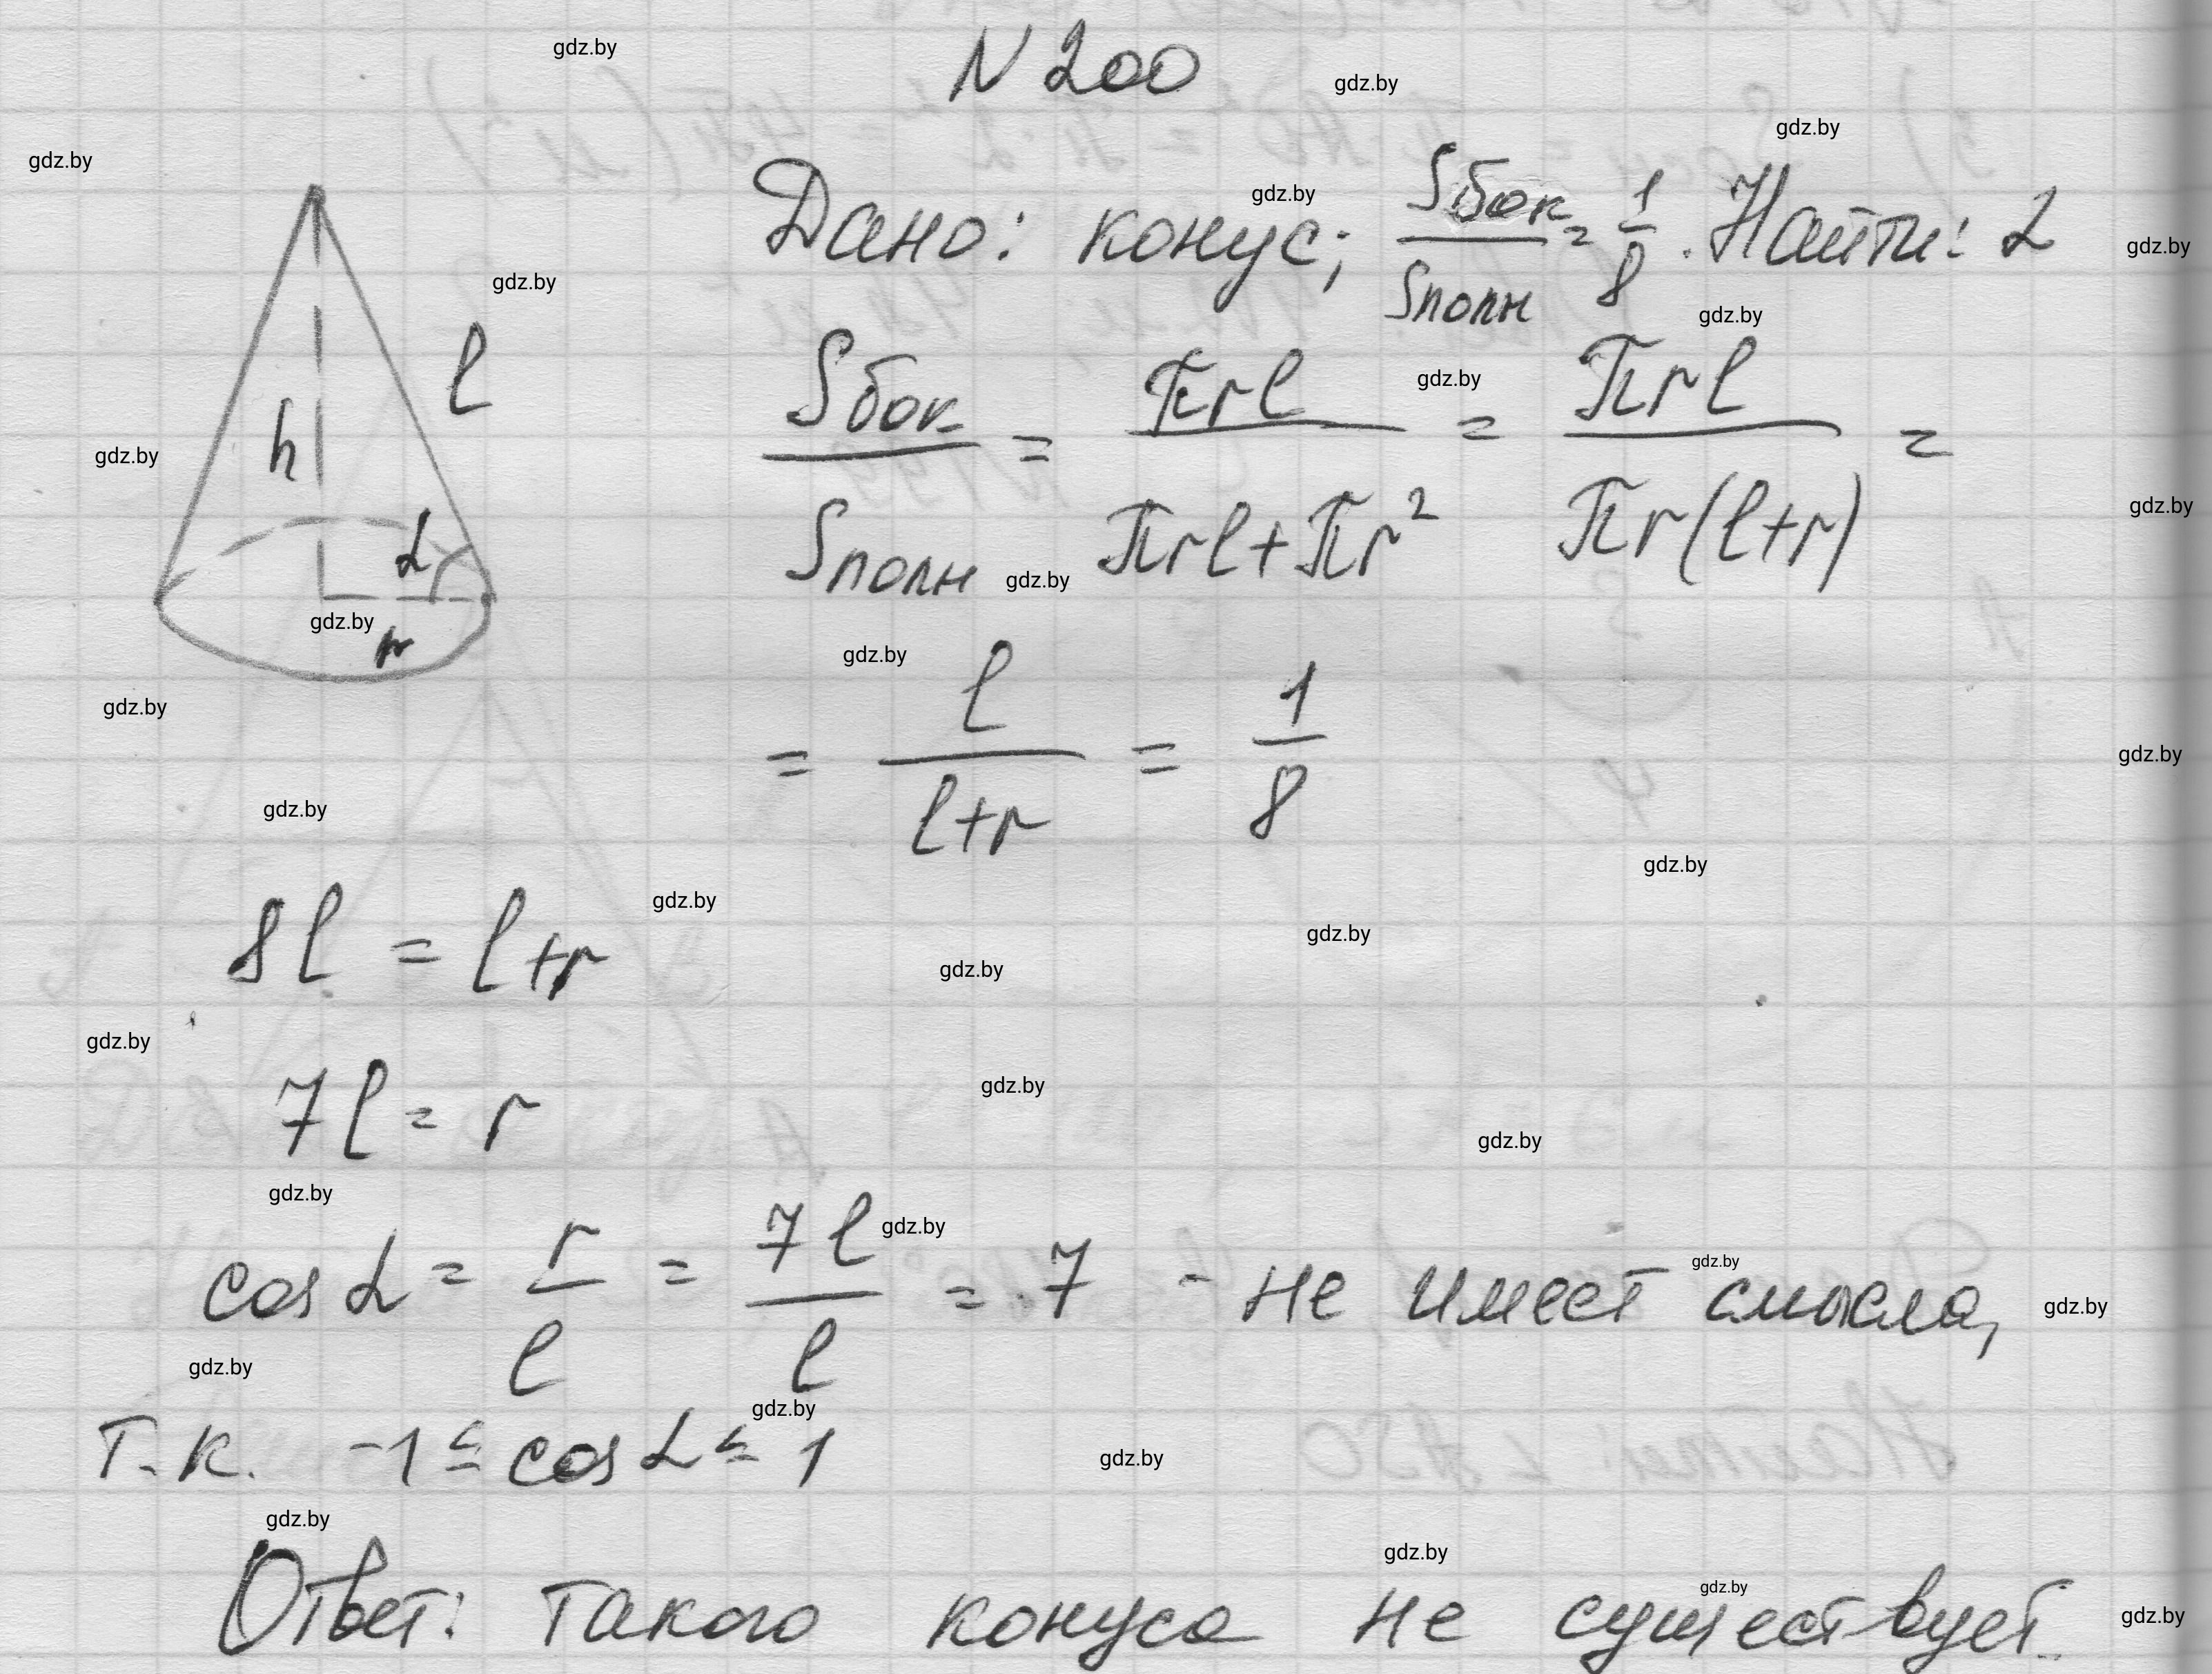 N 200
Дано: конус; Sбок/Sполн = 1/8. Найти: α
Sбок/Sполн = πrl/(πrl+πr²) = πrl/(πr(l+r)) =
= l/(l+r) = 1/8
h
l
α
r
8l = l+r
7l = r
cos α = r/l = 7l/l = 7 - не имеет смысла,
т.к. -1 ≤ cos α ≤ 1
Ответ: такого конуса не существует.
gdz.by